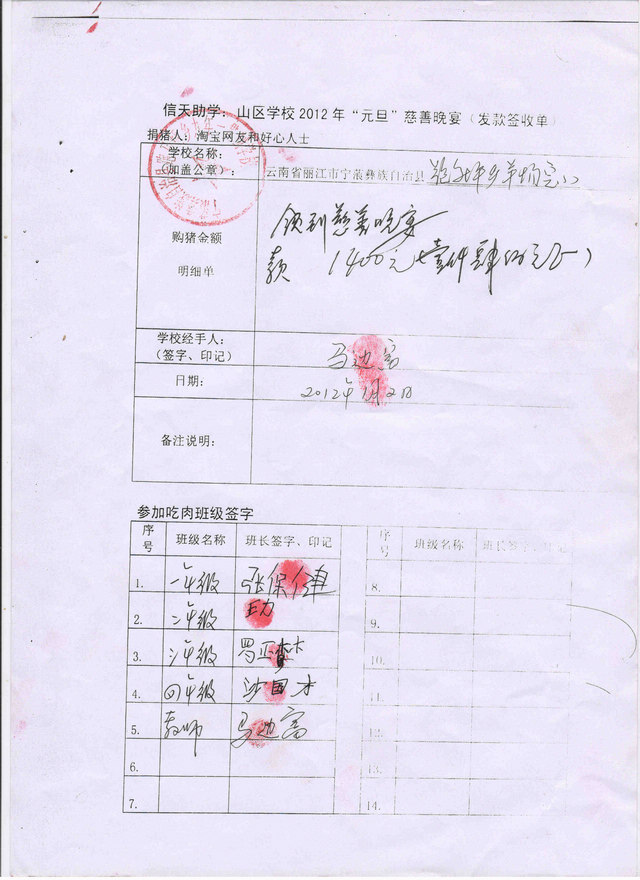 信天助学：山区学校2012年“元旦”慈善晚宴（发款签收单）
捐猪人：淘宝网友和好心人士
学校名称：
（如盖公章）：
云南省丽江市宁蒗彝族自治县
购猪金额
明细单
领到慈善晚宴
款 1400元
学校经手人：
（签字、印记）
马边富
日期：
2012年1月2日
备注说明：
参加吃肉班级签字
序号 班级名称 班长签字、印记 序号 班级名称 班长签字、印记
1. 一年级 张保 8.
2. 二年级 9.
3. 三年级 罗正 10.
4. 四年级 沙国才 11.
5. 教师 马边富 12.
6. 13.
7. 14.